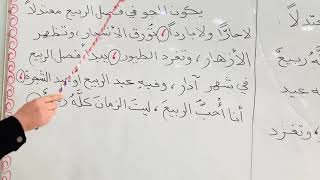 يكون الجو في فصل الربيع معتدلاً
لا حارًّا ولا باردًا، تورق الأشجار، وتظهر
الأزهار، وتغرد الطيور، يبدأ فصل الربيع
في شهر آذار، وفيه عيد الربيع أو عيد الشجرة،
أنا أُحبُّ الربيعَ، ليتَ الزمانَ كلَّهُ ربيعٌ.